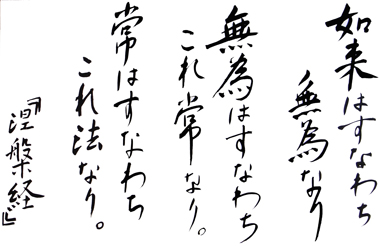 如来はすなわち
無為なり
無為はすなわち
これ常なり。
常はすなわち
これ法なり。
『涅槃経』